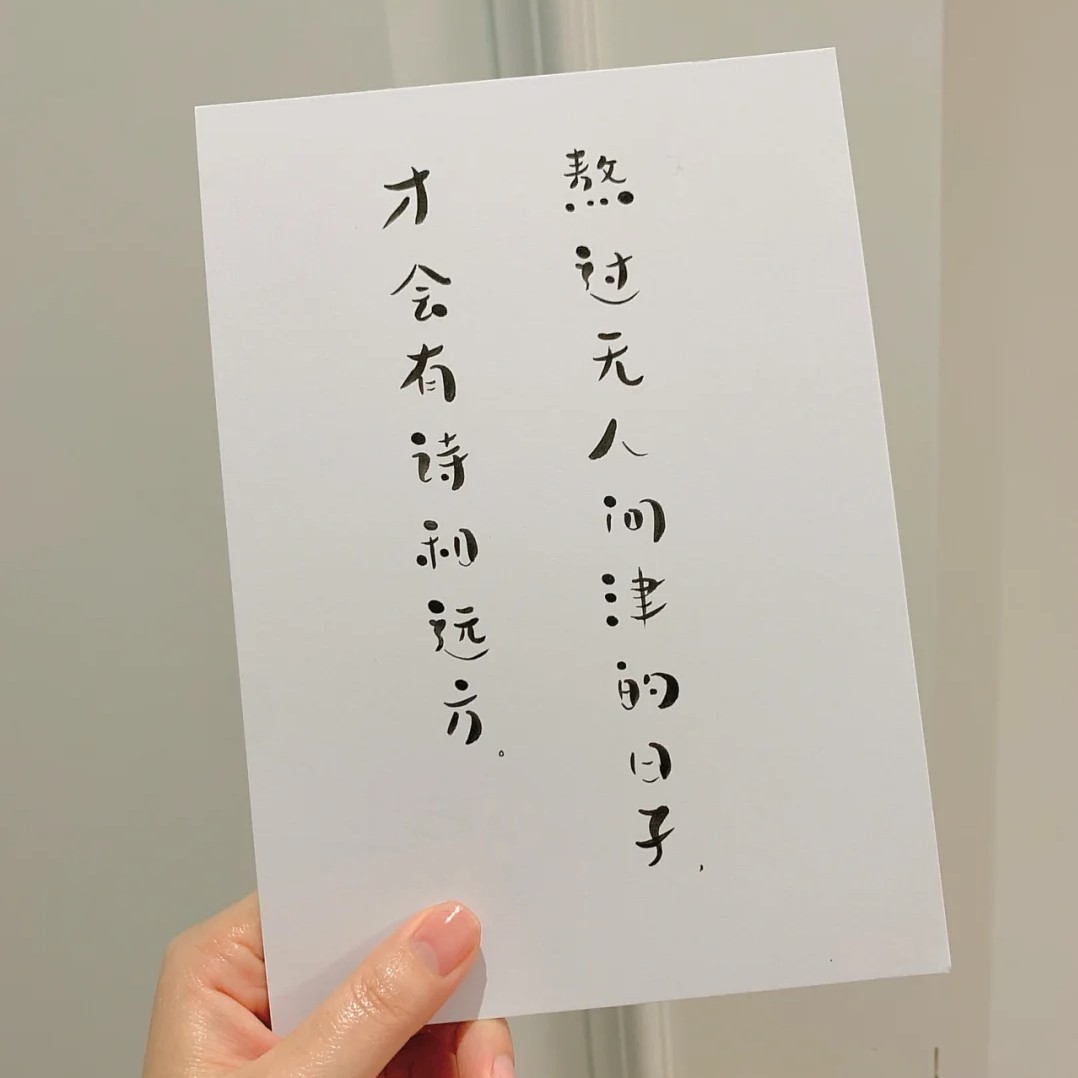 熬过无人问津的日子，
才会有诗和远方。